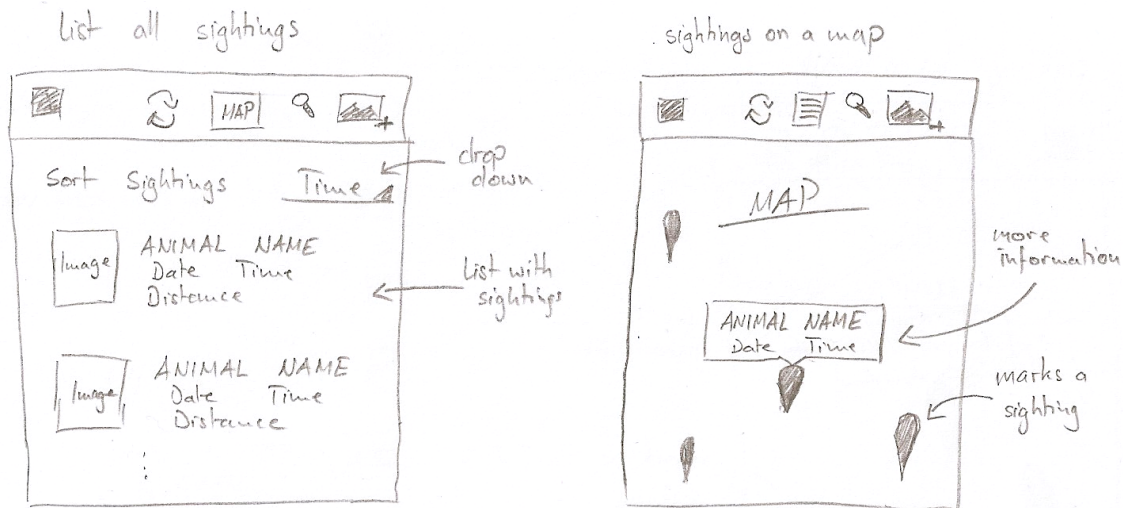 List all sightings
MAP
Sort Sightings Time
drop
down
Image
ANIMAL NAME
Date Time
Distance
List with
sightings
Image
ANIMAL NAME
Date Time
Distance
sightings on a map
MAP
more
information
ANIMAL NAME
Date Time
marks a
sighting